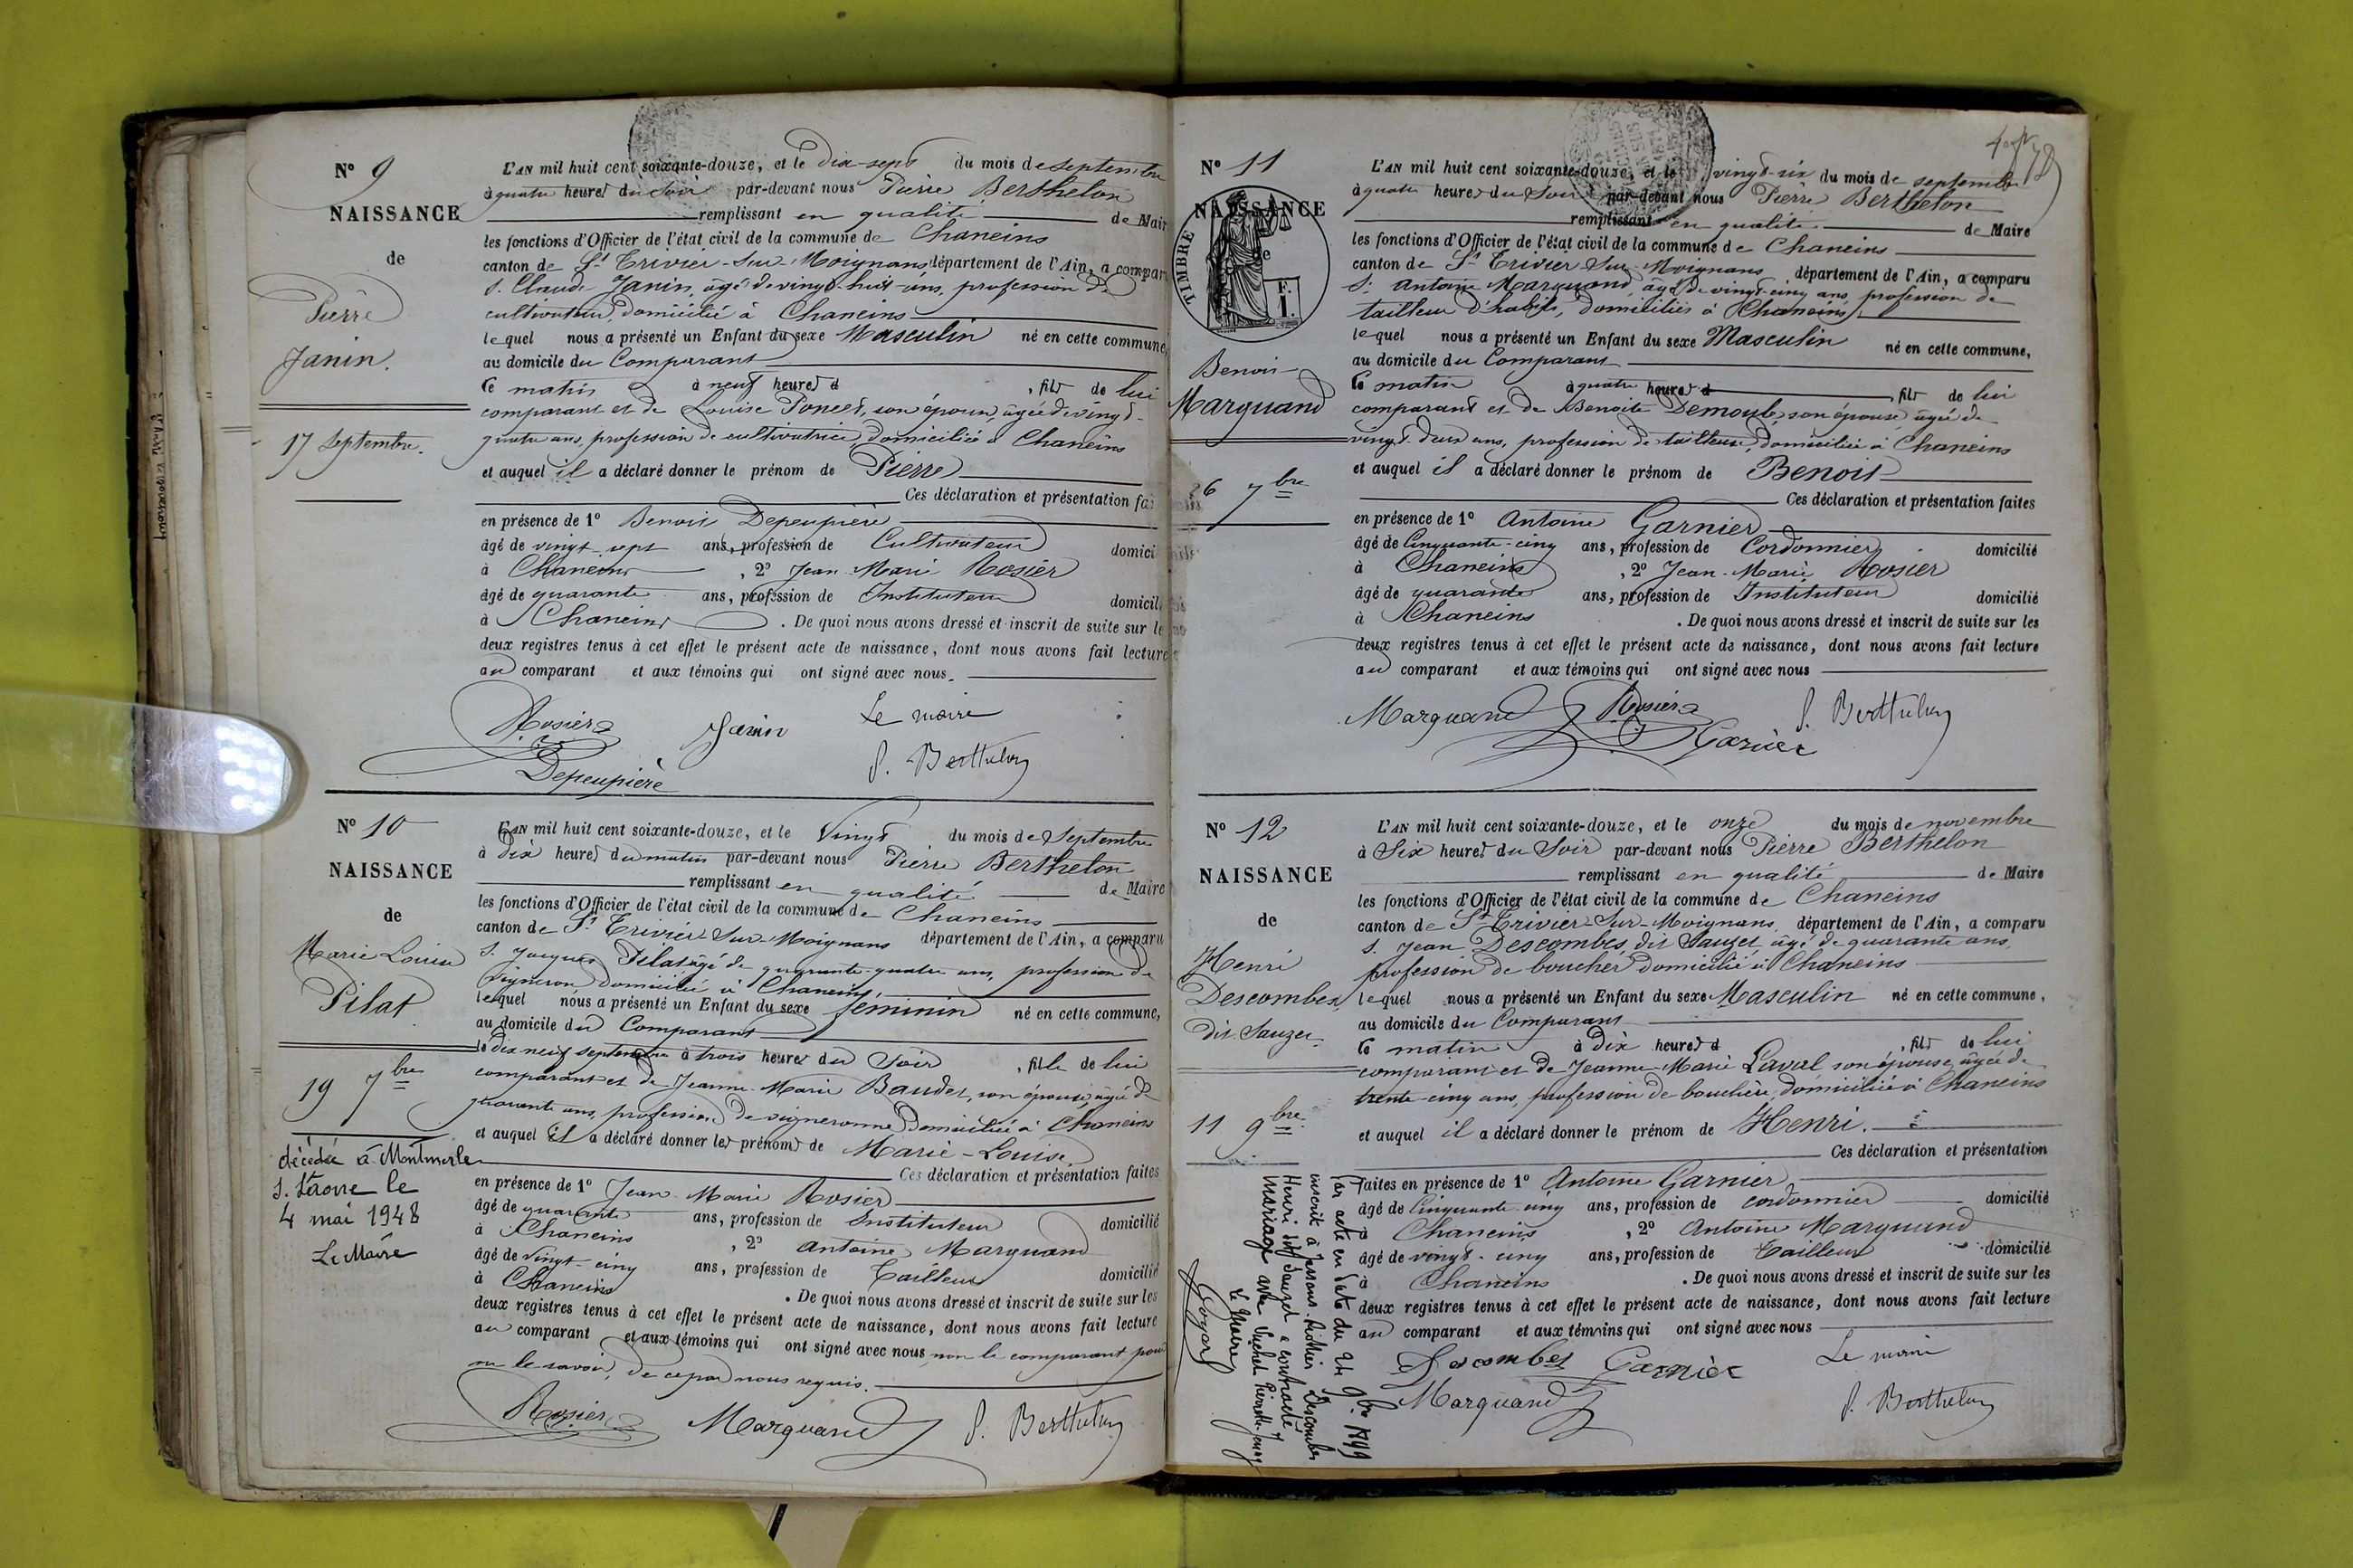 N° 9
NAISSANCE
de
Pierre
Janin.
17 Septembre.
L'AN mil huit cent soixante-douze, et le dix-sept du mois de septembre
à quatre heures du soir par-devant nous Pierre Berthelon
remplissant en qualité de Mair
les fonctions d'Officier de l'état civil de la commune de Chaneins
canton de St Trivier-sur-Moignans département de l'Ain, a compar
S. Claude Janin, âgé de vingt-huit ans, profession de
cultivateur, domicilié à Chaneins
lequel nous a présenté un Enfant du sexe Masculin né en cette commune,
au domicile du Comparant
le matin à neuf heures d , fils de lui
comparant et de Louise Poncet, son épouse, âgée de vingt-
quatre ans, profession de cultivatrice, domiciliée à Chaneins
et auquel il a déclaré donner le prénom de Pierre
Ces déclaration et présentation fai
en présence de 1° Benoit Depeupière
âgé de vingt-sept ans, profession de Cultivateur domici
à Chaneins , 2° Jean-Marie Rosier
âgé de quarante ans, profession de Instituteur domicil
à Chaneins . De quoi nous avons dressé et inscrit de suite sur le
deux registres tenus à cet effet le présent acte de naissance, dont nous avons fait lecture
au comparant et aux témoins qui ont signé avec nous.
Rosier Janin Le maire
Depeupière P. Berthelon
N° 10
NAISSANCE
de
Marie Louise
Pilat
19 7bre
décédée à Montmerle
s. Saône le
4 mai 1948
Le Maire
L'AN mil huit cent soixante-douze, et le Vingt du mois de Septembre
à Dix heures du matin par-devant nous Pierre Berthelon
remplissant en qualité de Maire
les fonctions d'Officier de l'état civil de la commune de Chaneins
canton de St Trivier-sur-Moignans département de l'Ain, a comparu
S. Jacques Pilat âgé de quarante-quatre ans, profession de
vigneron, domicilié à Chaneins,
lequel nous a présenté un Enfant du sexe féminin né en cette commune,
au domicile du Comparant
le dix neuf septembre à trois heures du Soir , fille de lui
comparant et de Jeanne-Marie Baudet, son épouse, âgée de
quarante ans, profession de vigneronne, domiciliée à Chaneins
et auquel il a déclaré donner les prénoms de Marie-Louise
Ces déclaration et présentation faites
en présence de 1° Jean-Marie Rosier
âgé de quarante ans, profession de Instituteur domicilié
à Chaneins , 2° Antoine Marquand
âgé de Vingt-cinq ans, profession de Tailleur domicilié
à Chaneins . De quoi nous avons dressé et inscrit de suite sur les
deux registres tenus à cet effet le présent acte de naissance, dont nous avons fait lecture
au comparant et aux témoins qui ont signé avec nous non le comparant pour
ne le savoir, de ce par nous requis.
Rosier Marquand P. Berthelon
N° 11
NAISSANCE
de
TIMBRE
F.
1.
Benoit
Marquand
26 7bre
L'AN mil huit cent soixante-douze, et le vingt-six du mois de septembre
à quatre heures du Soir par-devant nous Pierre Berthelon
remplissant en qualité de Maire
les fonctions d'Officier de l'état civil de la commune de Chaneins
canton de St Trivier-sur-Moignans département de l'Ain, a comparu
Sr Antoine Marquand, âgé de vingt-cinq ans, profession de
tailleur d'habits, domicilié à Chaneins,
lequel nous a présenté un Enfant du sexe Masculin né en cette commune,
au domicile du Comparant
le matin à quatre heures d , fils de lui
comparant et de Benoite Demoule, son épouse, âgée de
vingt-deux ans, profession de tailleuse, domiciliée à Chaneins
et auquel il a déclaré donner le prénom de Benoit
Ces déclaration et présentation faites
en présence de 1° Antoine Garnier
âgé de Cinquante-cinq ans, profession de Cordonnier domicilié
à Chaneins , 2° Jean-Marie Rosier
âgé de quarante ans, profession de Instituteur domicilié
à Chaneins . De quoi nous avons dressé et inscrit de suite sur les
deux registres tenus à cet effet le présent acte de naissance, dont nous avons fait lecture
au comparant et aux témoins qui ont signé avec nous
Marquand Rosier P. Berthelon
Garnier
N° 12
NAISSANCE
de
Henri
Descombes
dit Sauzet.
11 9bre
L'AN mil huit cent soixante-douze, et le onze du mois de novembre
à Six heures du Soir par-devant nous Pierre Berthelon
remplissant en qualité de Maire
les fonctions d'Officier de l'état civil de la commune de Chaneins
canton de St Trivier-Sur-Moignans département de l'Ain, a comparu
S. Jean Descombes dit Sauzet, âgé de quarante ans,
profession de boucher domicilié à Chaneins
lequel nous a présenté un Enfant du sexe Masculin né en cette commune,
au domicile du Comparant
le matin à Dix heures d , fils de lui
comparant et de Jeanne-Marie Laval, son épouse, âgée de
trente-cinq ans, profession de bouchère, domiciliée à Chaneins
et auquel il a déclaré donner le prénom de Henri.
Ces déclaration et présentation
faites en présence de 1° Antoine Garnier
âgé de Cinquante-cinq ans, profession de cordonnier domicilié
à Chaneins , 2° Antoine Marquand
âgé de vingt-cinq ans, profession de Tailleur domicilié
à Chaneins . De quoi nous avons dressé et inscrit de suite sur les
deux registres tenus à cet effet le présent acte de naissance, dont nous avons fait lecture
au comparant et aux témoins qui ont signé avec nous
Descombes Garnier Le maire
Marquand P. Berthelon
Par acte en date du 24 9bre 1899
inscrit à Jassans-Riottier Descombes
Henri dit Sauzet a contracté
mariage avec
Le Maire